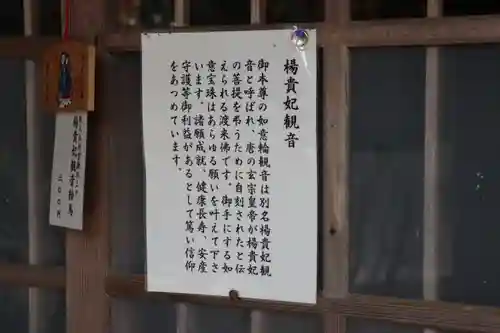 楊貴妃観音
御本尊の如意輪観音は別名楊貴妃観
音と呼ばれ、唐の玄宗皇帝が楊貴妃
の菩提を弔うために自刻されたと伝
えられる渡来佛です。御手にする如
意宝珠はあらゆる願いを叶えて下さ
います。諸願成就、健康長寿、安産
守護等御利益があるとして篤い信仰
をあつめています。
楊貴妃観音絵馬